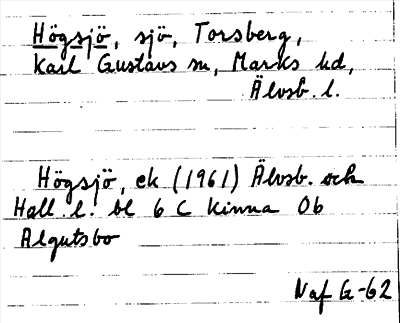 Högsjö, sjö, Torsberg,
Karl Gustavs sn, Marks hd,
Älvsb. l.
Högsjö, ek (1961) Älvsb. och
Hall. l. bl 6 C Kinna Ob
Algutsbo
Naf G-62